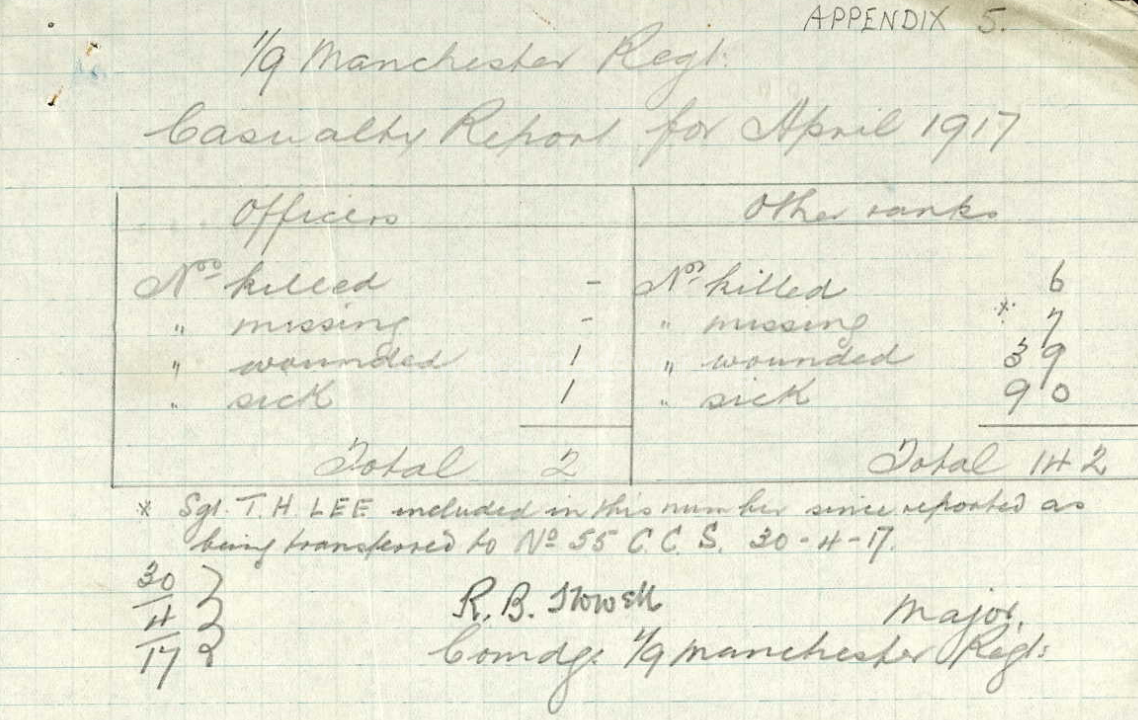 APPENDIX 5.
1/9 Manchester Regt.
Casualty Report for April 1917
Officers Other ranks
Nos killed - Nos killed 6
" missing - " missing * 7
" wounded 1 " wounded 39
" sick 1 " sick 90
Total 2 Total 142
* Sgt. T. H. LEE included in this number since reported as
being transferred to No 55 C C S. 30-4-17.
30/4/17 R. B. Nowell Major.
Comdg. 1/9 Manchester Regt.